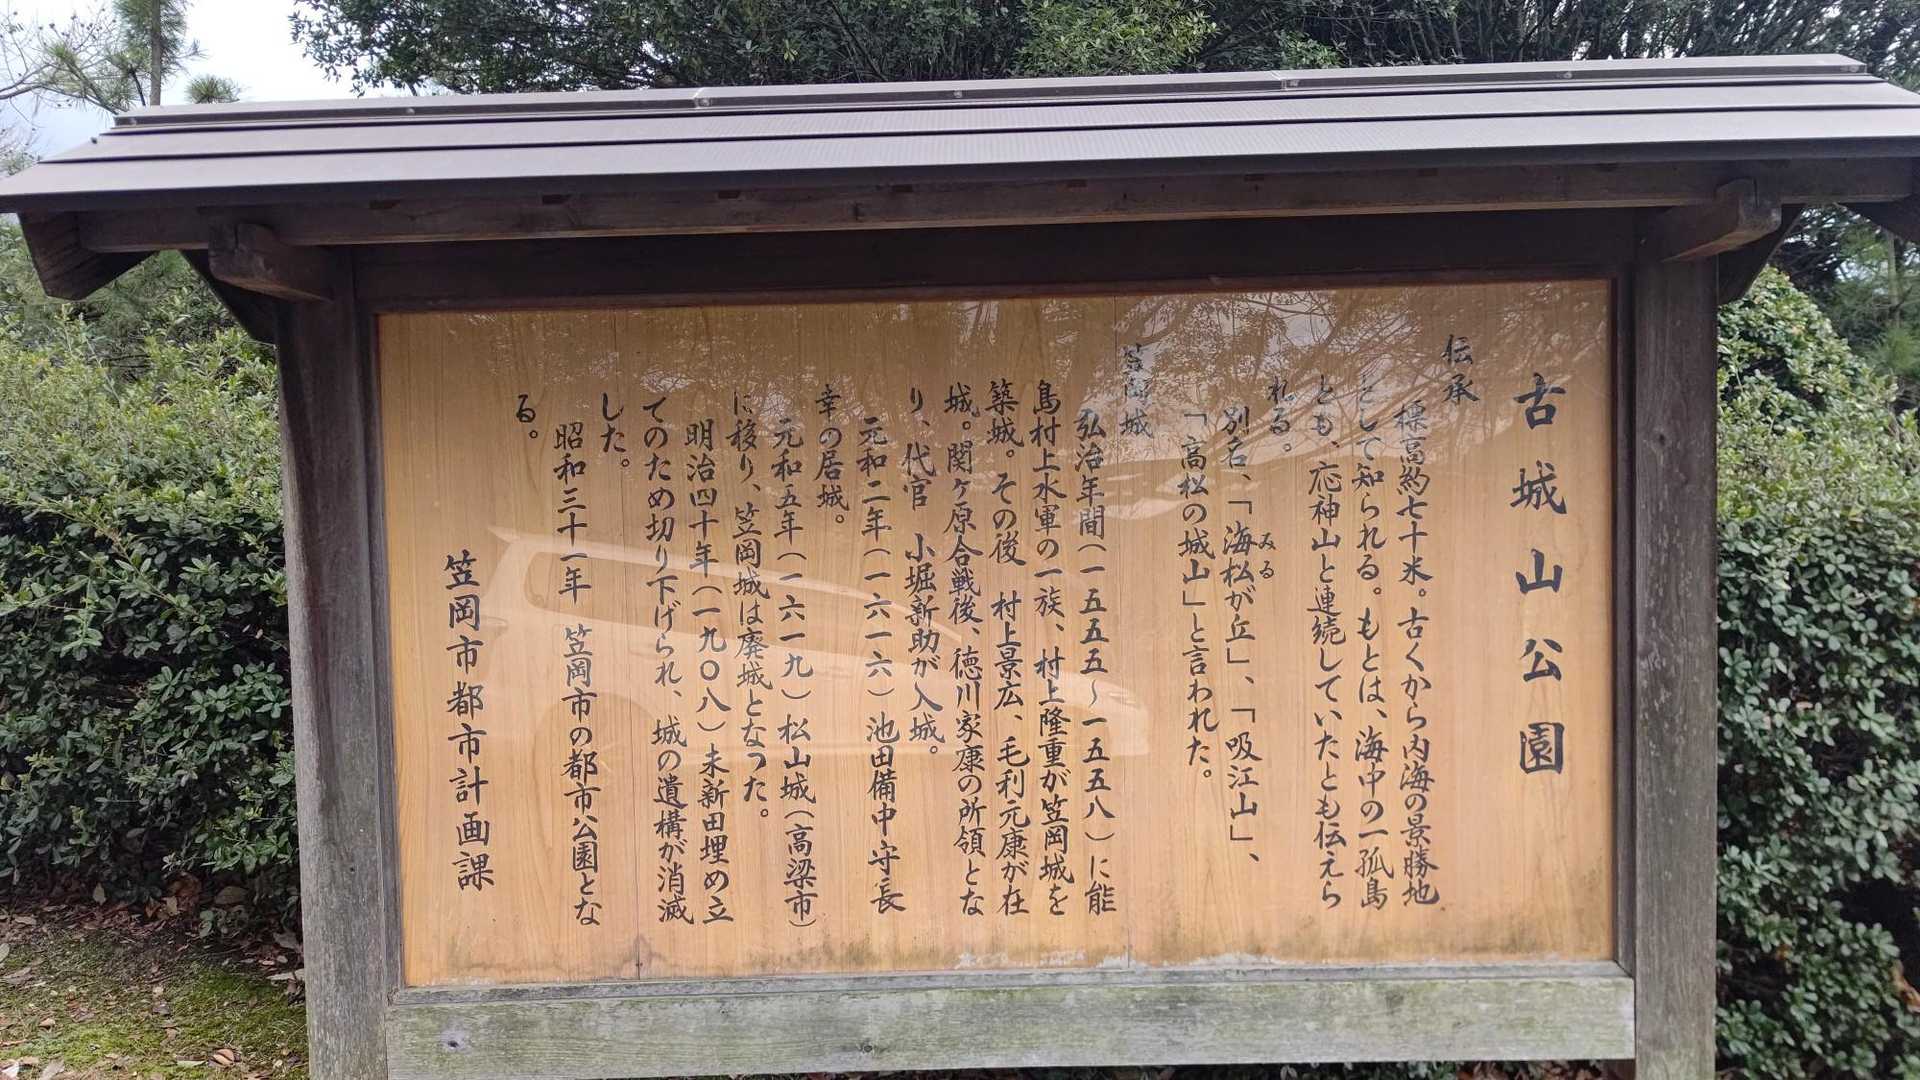 古城山公園
伝承
標高約七十米。古くから内海の景勝地
として知られる。もとは、海中の一孤島
とも、応神山と連続していたとも伝えら
れる。
別名、「海松が丘」、「吸江山」、
みる
「高松の城山」と言われた。
笠岡城
弘治年間(一五五五〜一五五八)に能
島村上水軍の一族、村上隆重が笠岡城を
築城。その後 村上景広、毛利元康が在
城。関ヶ原合戦後、徳川家康の所領とな
り、代官 小堀新助が入城。
元和二年(一六一六)池田備中守長
幸の居城。
元和五年(一六一九)松山城(高梁市)
に移り、笠岡城は廃城となった。
明治四十年(一九〇八)未新田埋め立
てのため切り下げられ、城の遺構が消滅
した。
昭和三十一年 笠岡市の都市公園とな
る。
笠岡市都市計画課